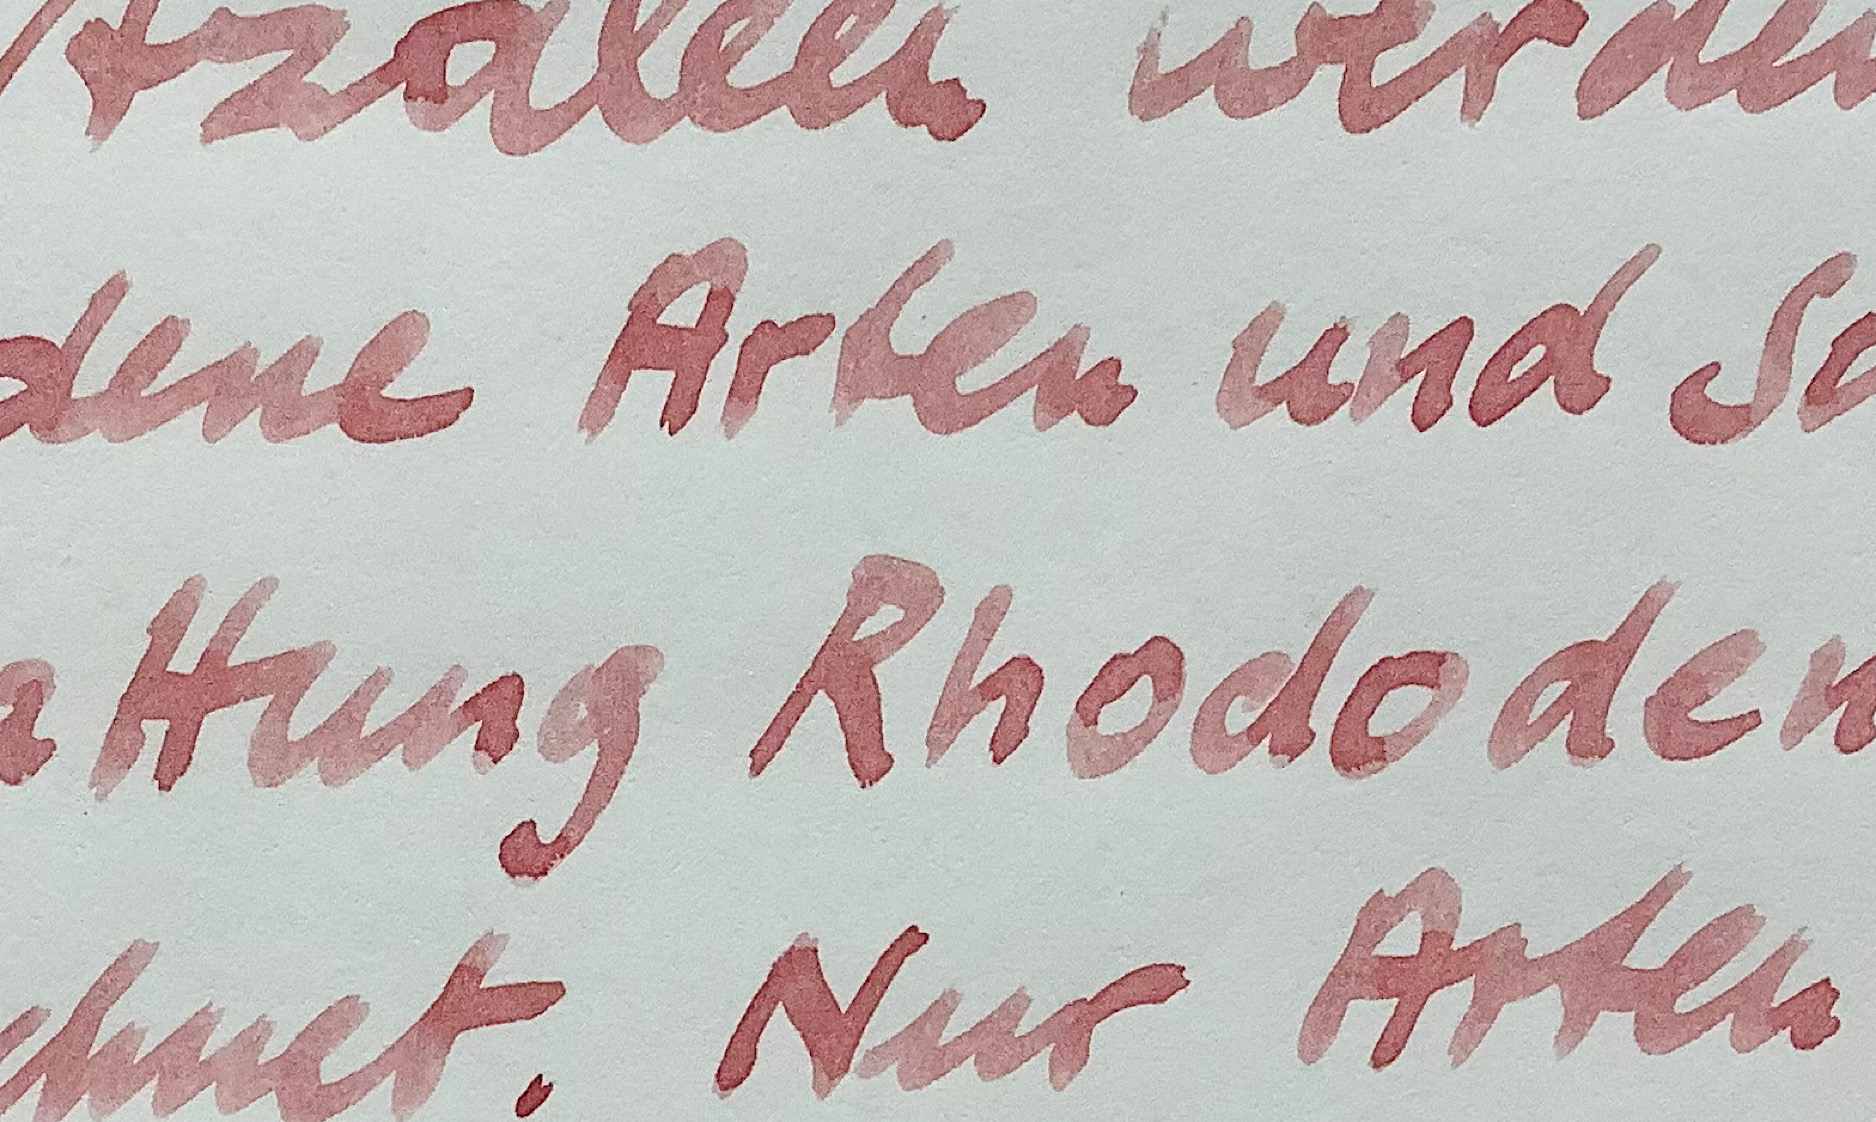 Azaleen werden
dene Arten und So
attung Rhododen
chnet. Nur Arten